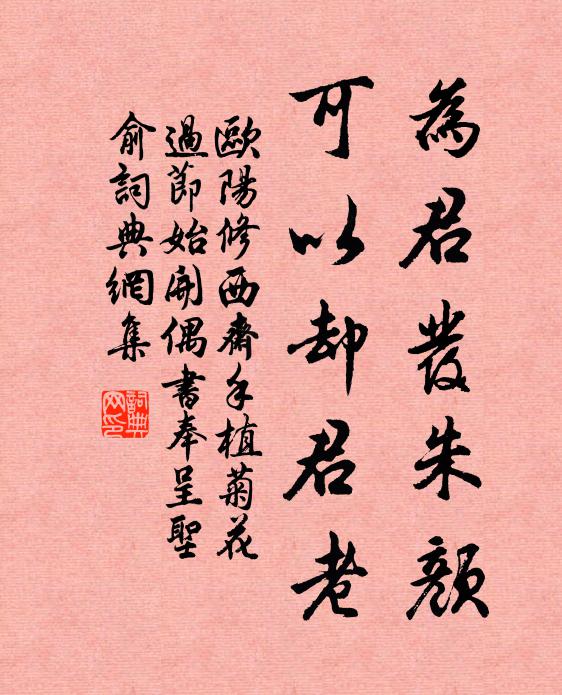 為君發朱顏
可以却君老
歐陽修西齋手植菊花
過節始開偶書奉呈聖
俞詞典網集
詞典
网印